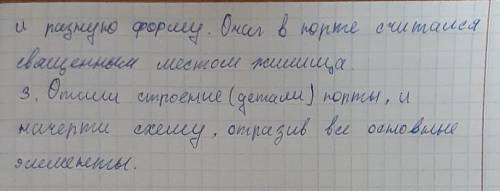 и разную форму. Очаг в порте считался
священным местом жилища.
3. Опиши строение (детали) порты, и
начерти схему, отразив все основные
элементы.